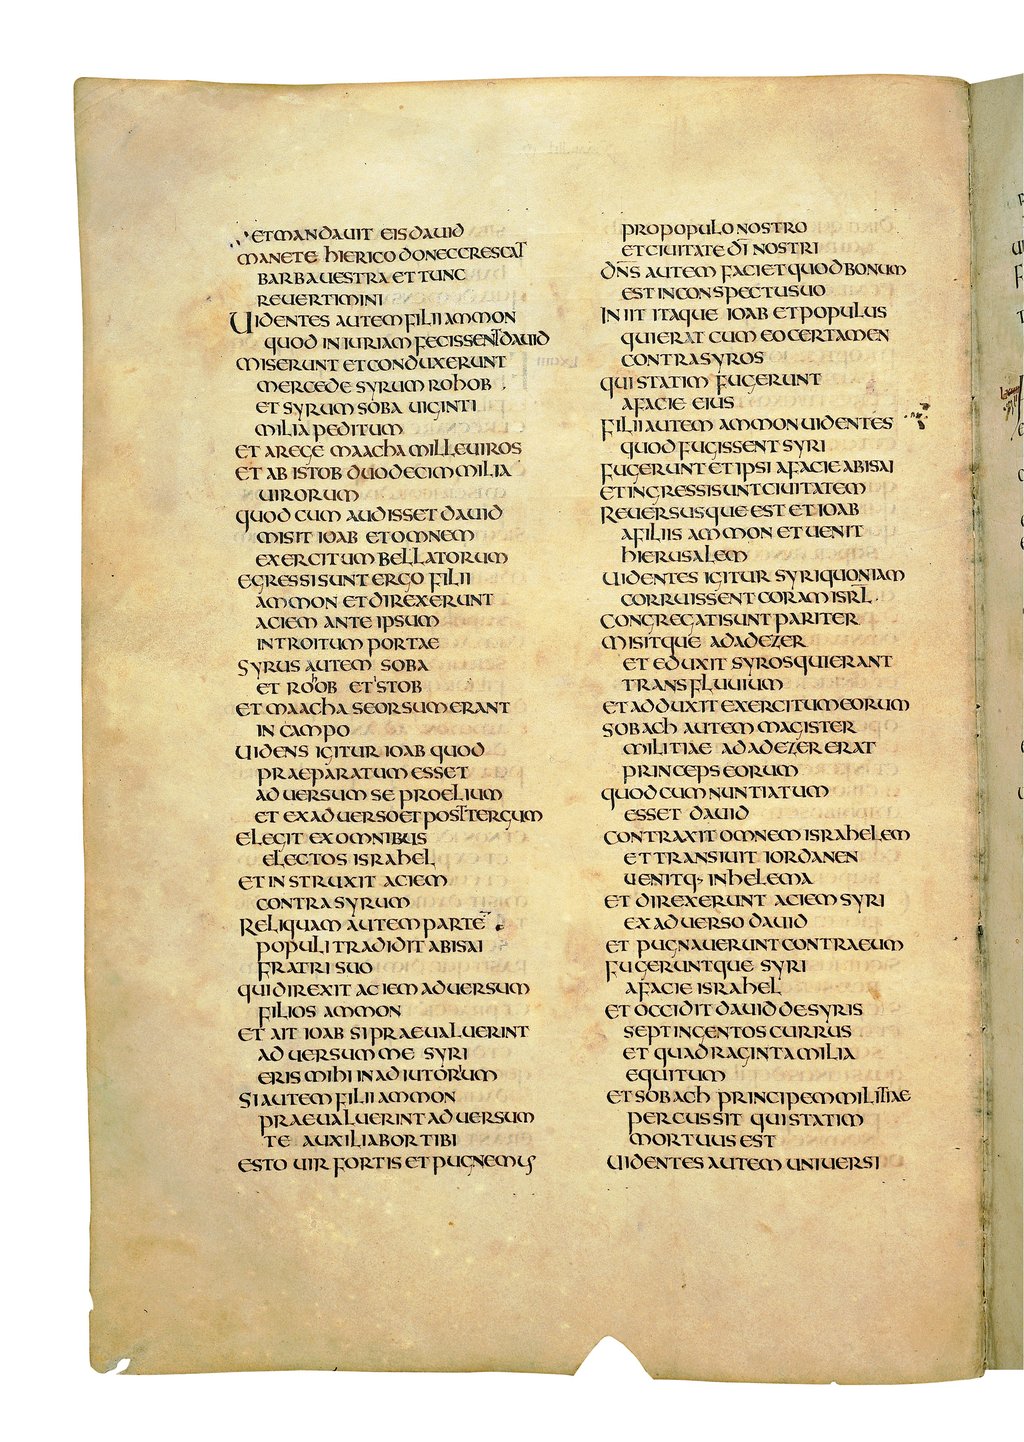 ET MANDAVIT EIS DAVID
MANETE HIERICO DONEC CRESCAT
BARBA VESTRA ET TUNC
REVERTIMINI
VIDENTES AUTEM FILII AMMON
QUOD INIURIAM FECISSENT DAVID
MISERUNT ET CONDUXERUNT
MERCEDE SYRUM ROHOB
ET SYRUM SOBA VIGINTI
MILIA PEDITUM
ET A REGE MAACHA MILLE VIROS
ET AB ISTOB DUODECIM MILIA
VIRORUM
QUOD CUM AUDISSET DAVID
MISIT IOAB ET OMNEM
EXERCITUM BELLATORUM
EGRESSI SUNT ERGO FILII
AMMON ET DIREXERUNT
ACIEM ANTE IPSUM
INTROITUM PORTAE
SYRUS AUTEM SOBA
ET ROHOB ET ISTOB
ET MAACHA SEORSUM ERANT
IN CAMPO
VIDENS IGITUR IOAB QUOD
PRAEPARATUM ESSET
ADVERSUM SE PROELIUM
ET EX ADVERSO ET POST TERGUM
ELEGIT EX OMNIBUS
ELECTOS ISRAHEL
ET INSTRUXIT ACIEM
CONTRA SYRUM
RELIQUAM AUTEM PARTE̅
POPULI TRADIDIT ABISAI
FRATRI SUO
QUI DIREXIT ACIEM ADVERSUM
FILIOS AMMON
ET AIT IOAB SI PRAEVALUERINT
ADVERSUM ME SYRI
ERIS MIHI IN ADIUTORIUM
SI AUTEM FILII AMMON
PRAEVALUERINT ADVERSUM
TE AUXILIABOR TIBI
ESTO VIR FORTIS ET PUGNEMUS
PRO POPULO NOSTRO
ET CIVITATE D̅I̅ NOSTRI
D̅N̅S̅ AUTEM FACIET QUOD BONUM
EST IN CONSPECTU SUO
INIIT ITAQUE IOAB ET POPULUS
QUI ERAT CUM EO CERTAMEN
CONTRA SYROS
QUI STATIM FUGERUNT
A FACIE EIUS
FILII AUTEM AMMON VIDENTES
QUOD FUGISSENT SYRI
FUGERUNT ET IPSI A FACIE ABISAI
ET INGRESSI SUNT CIVITATEM
REVERSUSQUE EST ET IOAB
A FILIIS AMMON ET VENIT
HIERUSALEM
VIDENTES IGITUR SYRI QUONIAM
CORRUISSENT CORAM ISRL̅
CONGREGATI SUNT PARITER
MISITQUE ADADEZER
ET EDUXIT SYROS QUI ERANT
TRANS FLUVIUM
ET ADDUXIT EXERCITUM EORUM
SOBACH AUTEM MAGISTER
MILITIAE ADADEZER ERAT
PRINCEPS EORUM
QUOD CUM NUNTIATUM
ESSET DAVID
CONTRAXIT OMNEM ISRAHELEM
ET TRANSIVIT IORDANEN
VENITQ· IN HELEMA
ET DIREXERUNT ACIEM SYRI
EX ADVERSO DAVID
ET PUGNAVERUNT CONTRA EUM
FUGERUNTQUE SYRI
A FACIE ISRAHEL
ET OCCIDIT DAVID DE SYRIS
SEPTINGENTOS CURRUS
ET QUADRAGINTA MILIA
EQUITUM
ET SOBACH PRINCIPEM MILITIAE
PERCUSSIT QUI STATIM
MORTUUS EST
VIDENTES AUTEM UNIVERSI